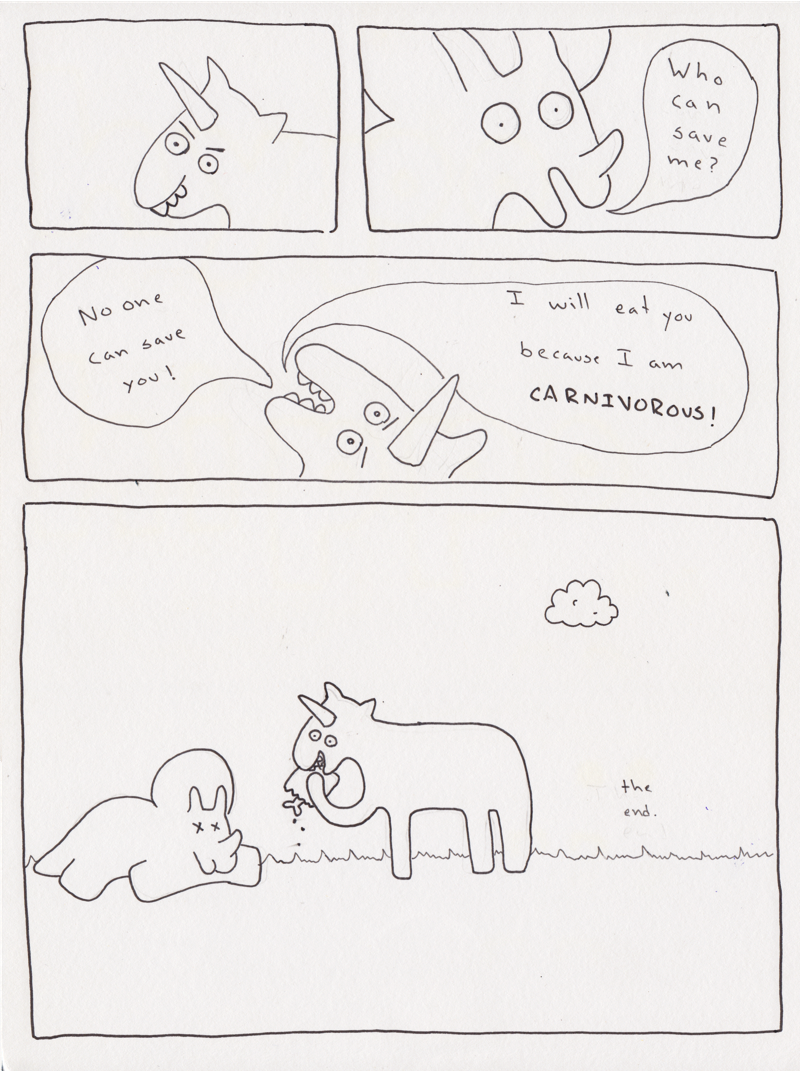 Who
can
save
me?
No one
can save
you!
I will eat you
because I am
CARNIVOROUS!
the
end.